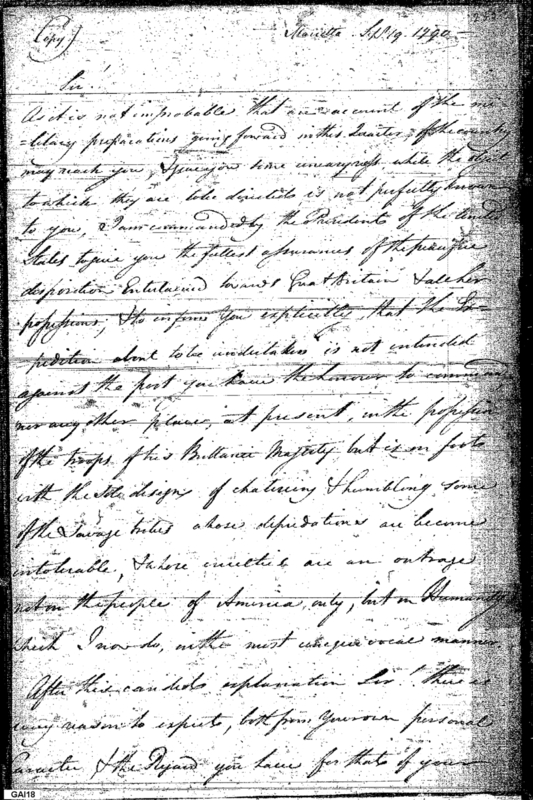 (Copy)
Marietta Sepr. 19. 1790
Sir!
As it is not improbable that an account of the mi
=litary preparations going forward in this Quarter of the country
may reach you, & give you some uneasyness while the object
to which they are to be directed is not perfectly known
to you, I am commanded by the President of the United
States to give you the fullest assurances of the pacific
disposition entertained towards Great Britain & all her
possessions, & to inform you explicitly that the Ex-
pedition about to be undertaken is not intended
against the post you have the honour to command
nor any other place, at present, in the possession
of the troops of his Brittanic Majesty but is on foot
with the sole design of chastising & humbling some
of the Savage tribes whose depridations are become
intolerable, & whose cruelties are an outrage
not on the people of America only, but on Humanity
which I now do, in the most unequivocal manner.
After this candid explanation Sir! there is
every reason to expect, both from your own personal
Caracter & the Regard you have for that of your
GAI18